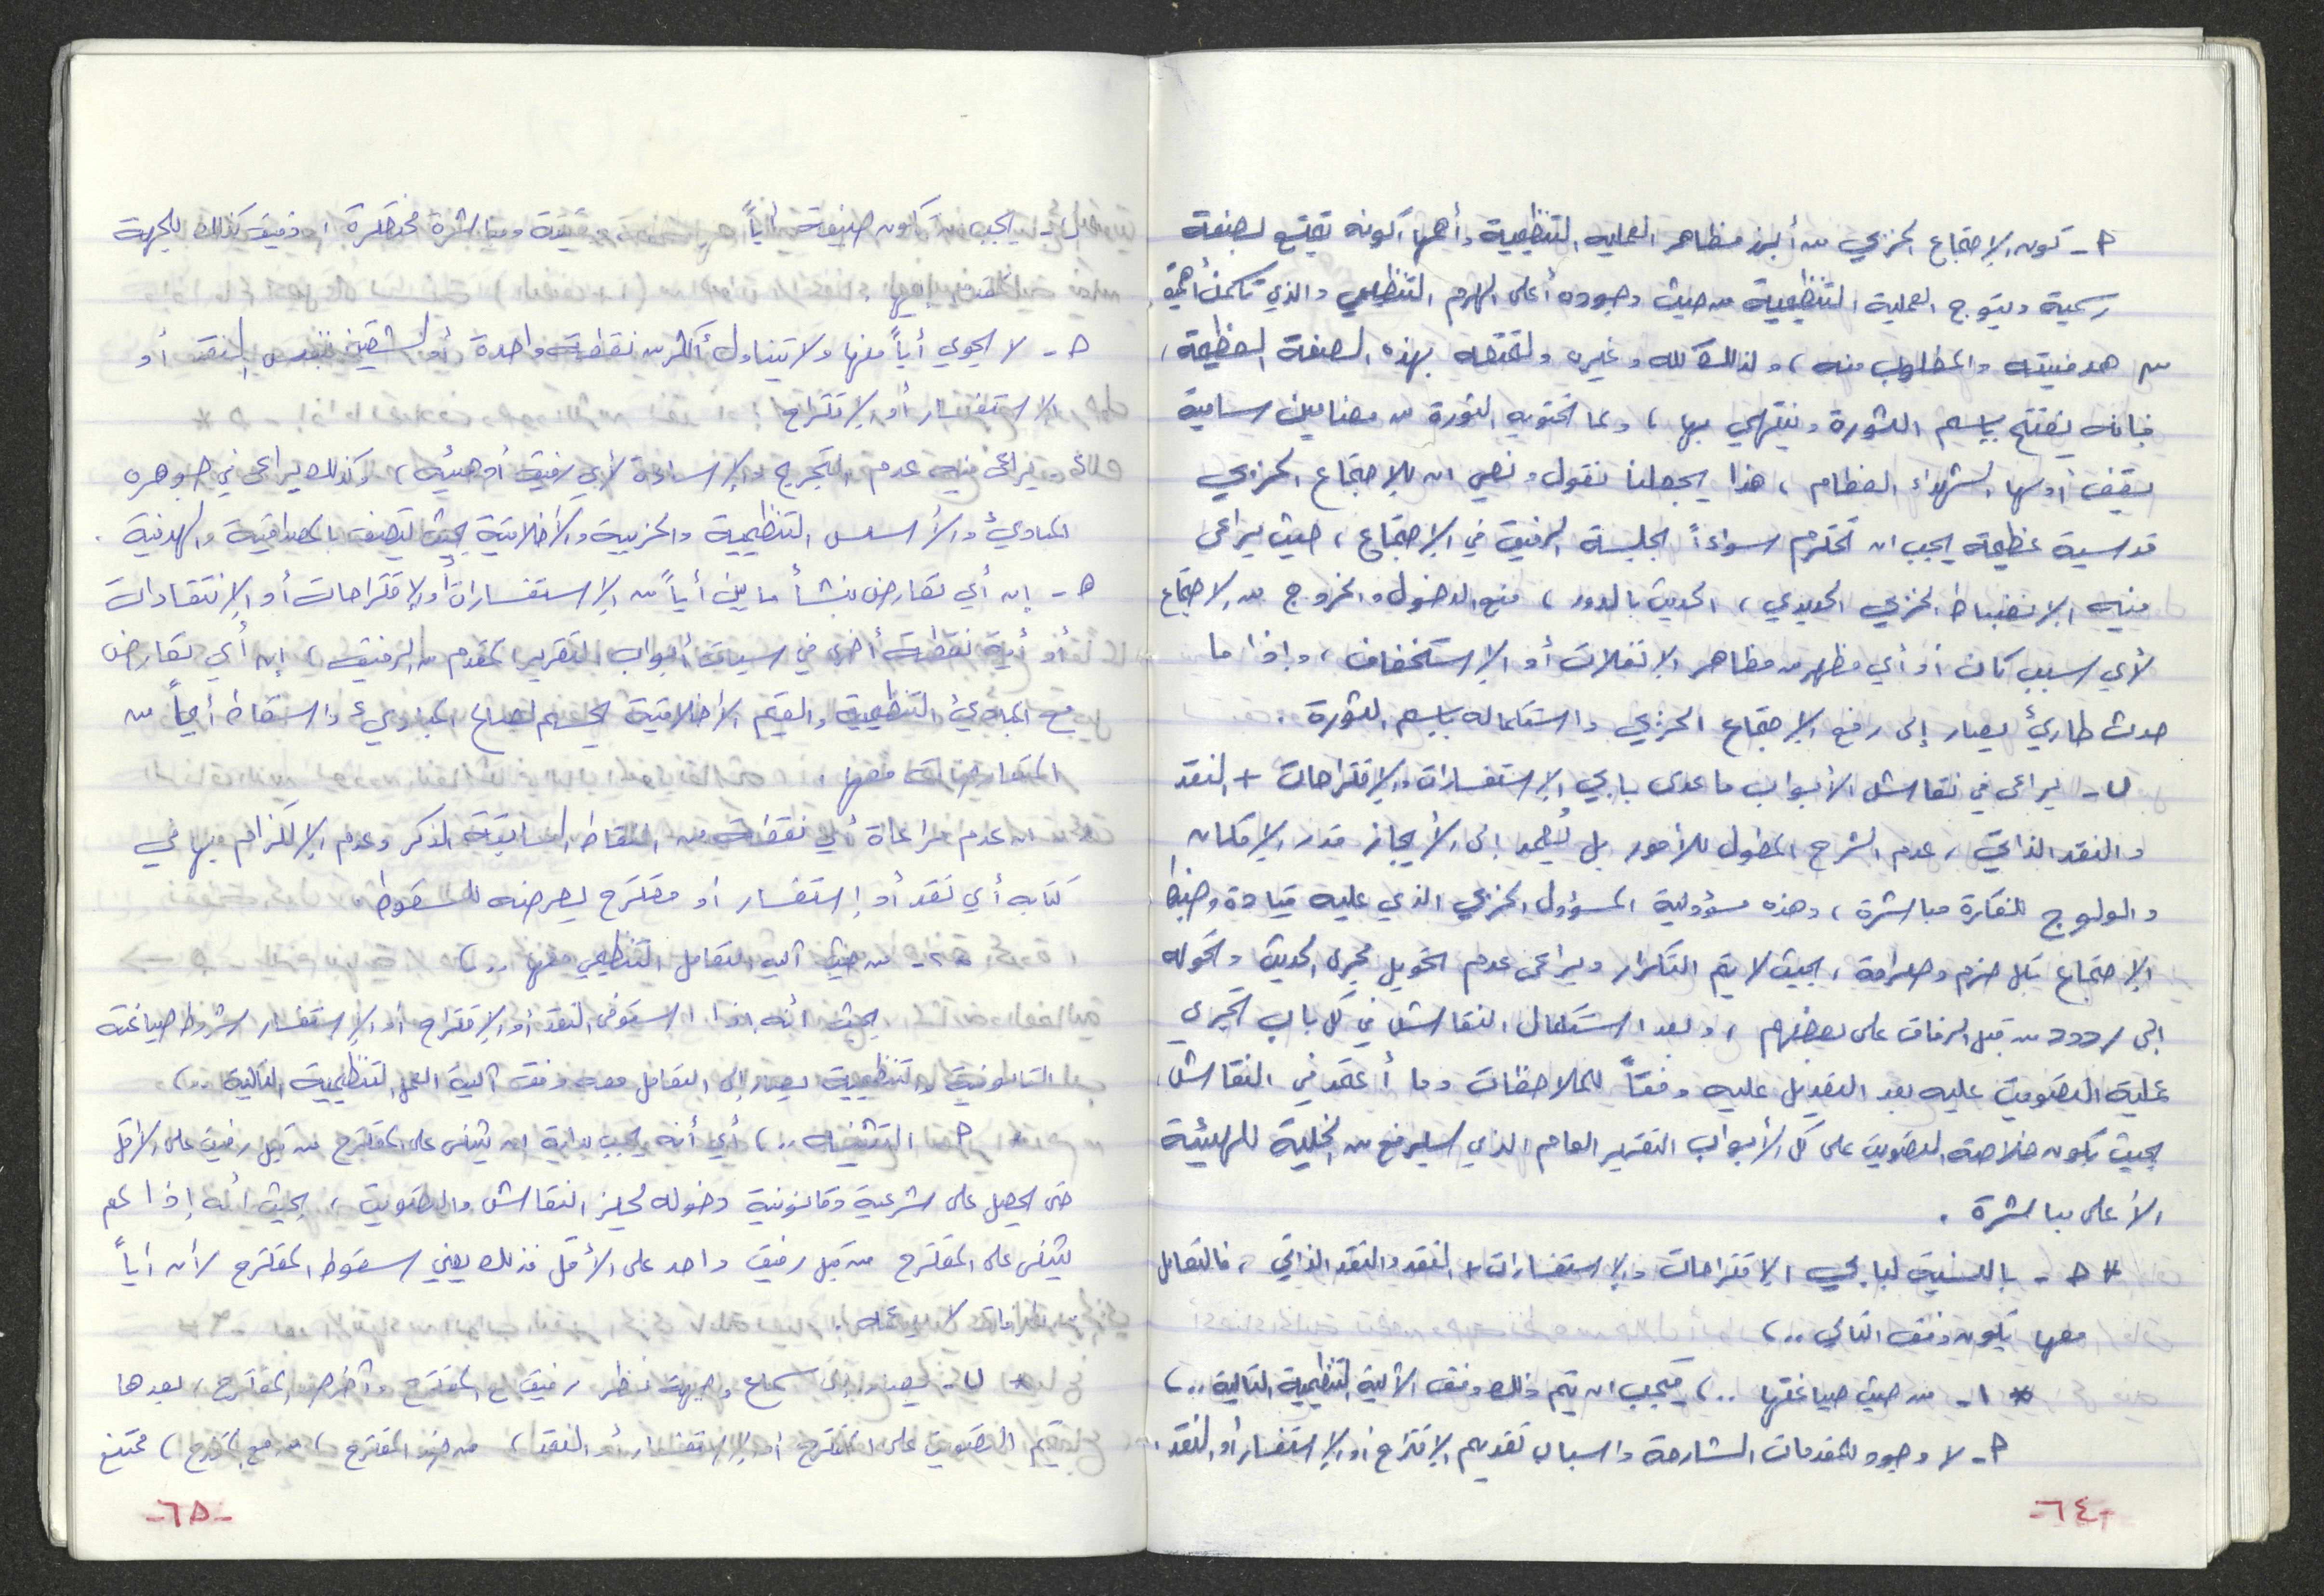 أ- كون الإجتماع الحزبي من أبرز مظاهر العملية التنظيمية وأهمها كونه يتمتع بصفة
رسمية ويتوج العملية التنظيمية من حيث وجوده أعلى الهرم التنظيمي والذي تكمن أهميته
من هدفيته والمطلوب منه، ولذلك كله وغيره ولتمتعه بهذه الصفة العظيمة،
فإنه يفتتح بإسم الثورة وينتهي بها، وبما تحتويه الثورة من مضامين سامية
يقف أوسها الشهداء العظام، هذا يجعلنا نقول ونعي ان للإجتماع الحزبي
قدسية عظيمة يجب ان تحترم سواءً بجلسة الرفيق في الإجتماع، حيث يراعى
فيه الإنضباط الحزبي الحديدي، الحديث بالدور، منع الدخول والخروج من الاجتماع
لأي سبب كان أو أي مظهر من مظاهر الإنفلات أو الإستخفاف، وإذا ما
حدث طارئ يصار إلى رفع الإجتماع الحزبي واستكماله بإسم الثورة.
ب- يراعى في نقاش الأبواب ما عدى بابي الإستفسارات والإقتراحات + النقد
والنقد الذاتي، عدم الشرح المطول للأمور بل يُعمد إلى الأيجاز قدر الإمكان
والولوج للفكرة مباشرة، وهذه مسؤولية المسؤول الحزبي الذي عليه قيادة وضبط
الإجتماع بكل حزم وصرامة، بحيث لا يتم التكرار ويراعى عدم تحويل مجرى الحديث وتحوله
إلى ردود من قبل الرفاق على بعضهم، وبعد استكمال النقاش في كل باب تجري
عملية التصويت عليه بعد التعديل عليه وفقاً للملاحظات وما أعتمد في النقاش
بحيث تكون خلاصة التصويت على كل الأبواب التقرير العام الذي سيرفع من الخلية للهيئة
الأعلى مباشرة.
* ج- بالنسبة لبابي الإقتراحات والإستفسارات + النقد والنقد الذاتي، فالتعامل
معها يكون وفق التالي..،
* ١- من حيث صياغتها..، فيجب ان يتم ذلك وفق الآلية التنظيمية التالية..،
أ- لا وجود للمقدمات الشارحة واسباب تقديم الإقتراح أو الإستفسار أو النقد.
-٦٤-
ب- يجب ان تكون صيغة أياً منها دقيقة ومباشرة مختصرة، دقيقة كذلك للجهة
المقدم إليها.
ج- لا يحوي أياً منها ولا يتناول أكثر من نقطة واحدة أو لشقين بنفس النقد أو
الإستفسار أو الإقتراح.
د- ويراعى فيه عدم التجريح والإساءة لأي رفيق أو هيئة، وكذلك يراعى في جوهره
المبادئ والأسس التنظيمية والحزبية والأخلاقية بحيث تتصف بالمصداقية والهدفية.
هـ- إن أي تعارض ينشأ ما بين أياً من الإستفسارات أو الإقتراحات أو الإنتقادات
أو أية نقطة أخرى في سياق أبواب التقرير المقدم من الرفيق، إن أي تعارض
مع المبادئ التنظيمية والقيم الأخلاقية يحسم لصالح المبادئ واسقاط أياً من
المتعارضات معها.
ان عدم مراعاة أي نقطة من النقاط السابقة الذكر وعدم الإلتزام بها في
كتابه أي نقد أو إستفسار أو مقترح يعرضه للسقوط
* ٢- من حيث آلية التعامل التنظيمي معها..،
بحيث أنه إذا استوفى النقد أو الإقتراح أو الإستفسار شروط صياغته
القانونية والتنظيمية يصار إلى التعامل معه وفق آلية العمل التنظيمية التالية..،
* أ- التثنية..، أي أنه يجب بداية ان يثنى على المقترح من قبل رفيق على الأقل
حتى يحصل على شرعية وقانونية دخوله لحيز النقاش والتصويت، بحيث أنه إذا لم
يثنى على المقترح من قبل رفيق واحد على الأقل فذلك يعني سقوط المقترح لأن أياً
من الرفاق لا يدعمه.
* ب- يصار إلى سماع وجهة نظر رفيق مع المقترح وآخر ضد المقترح، بعدها
يتم التصويت على المقترح أو الإستفسار أو النقد، من ضد المقترح، من مع المقترح، ممتنع
-٦٥-